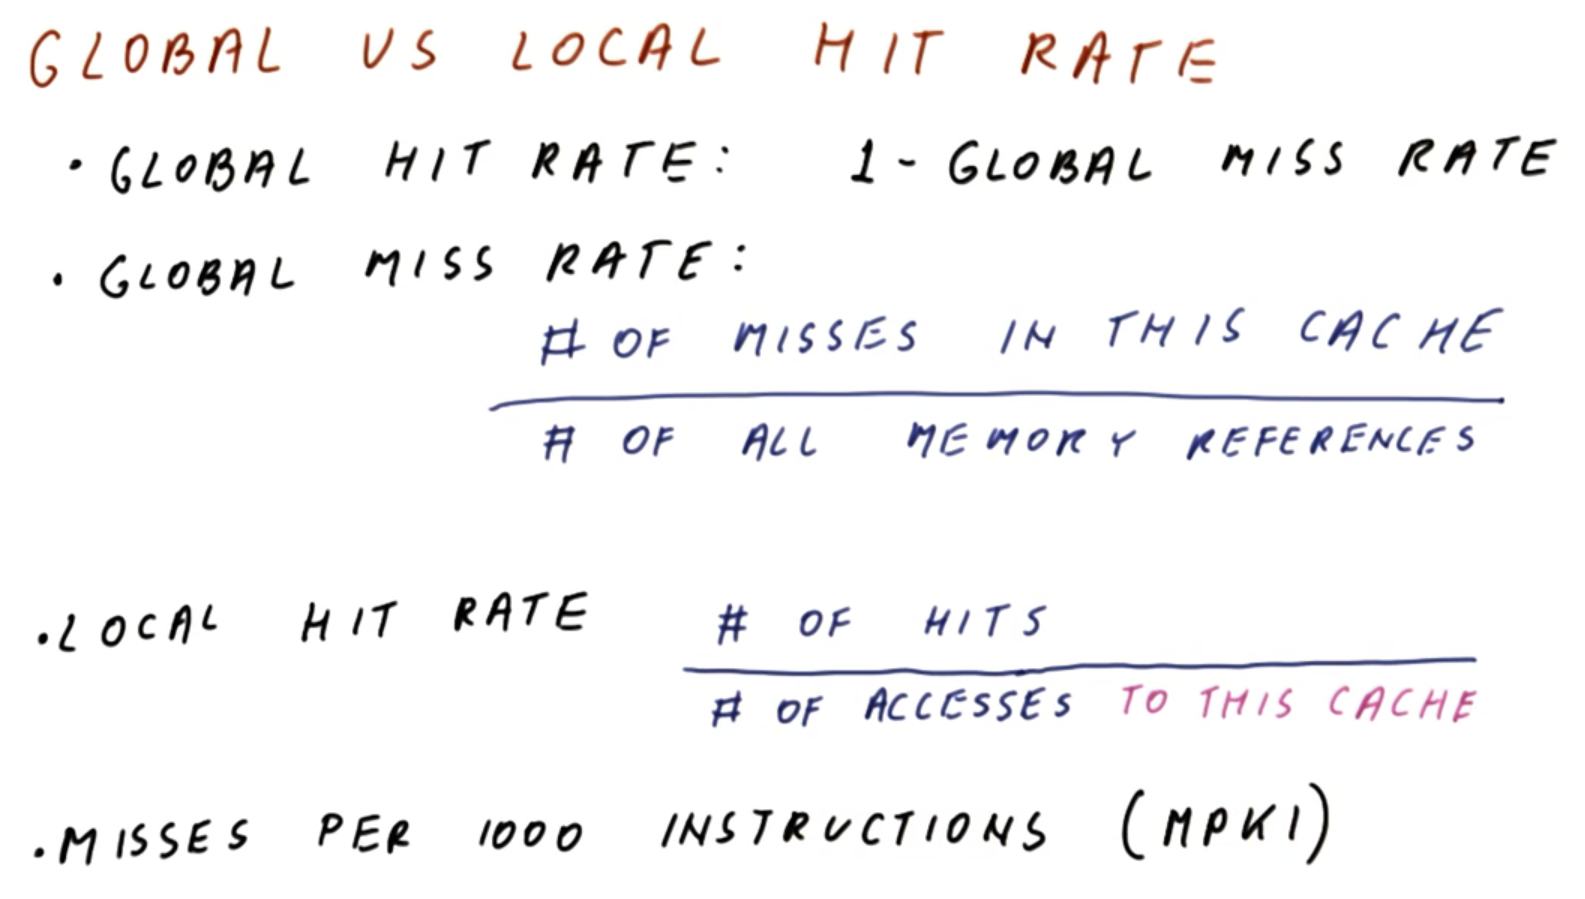 GLOBAL VS LOCAL HIT RATE
• GLOBAL HIT RATE: 1 - GLOBAL MISS RATE
• GLOBAL MISS RATE:
# OF MISSES IN THIS CACHE
# OF ALL MEMORY REFERENCES
• LOCAL HIT RATE
# OF HITS
# OF ACCESSES TO THIS CACHE
• MISSES PER 1000 INSTRUCTIONS (MPKI)